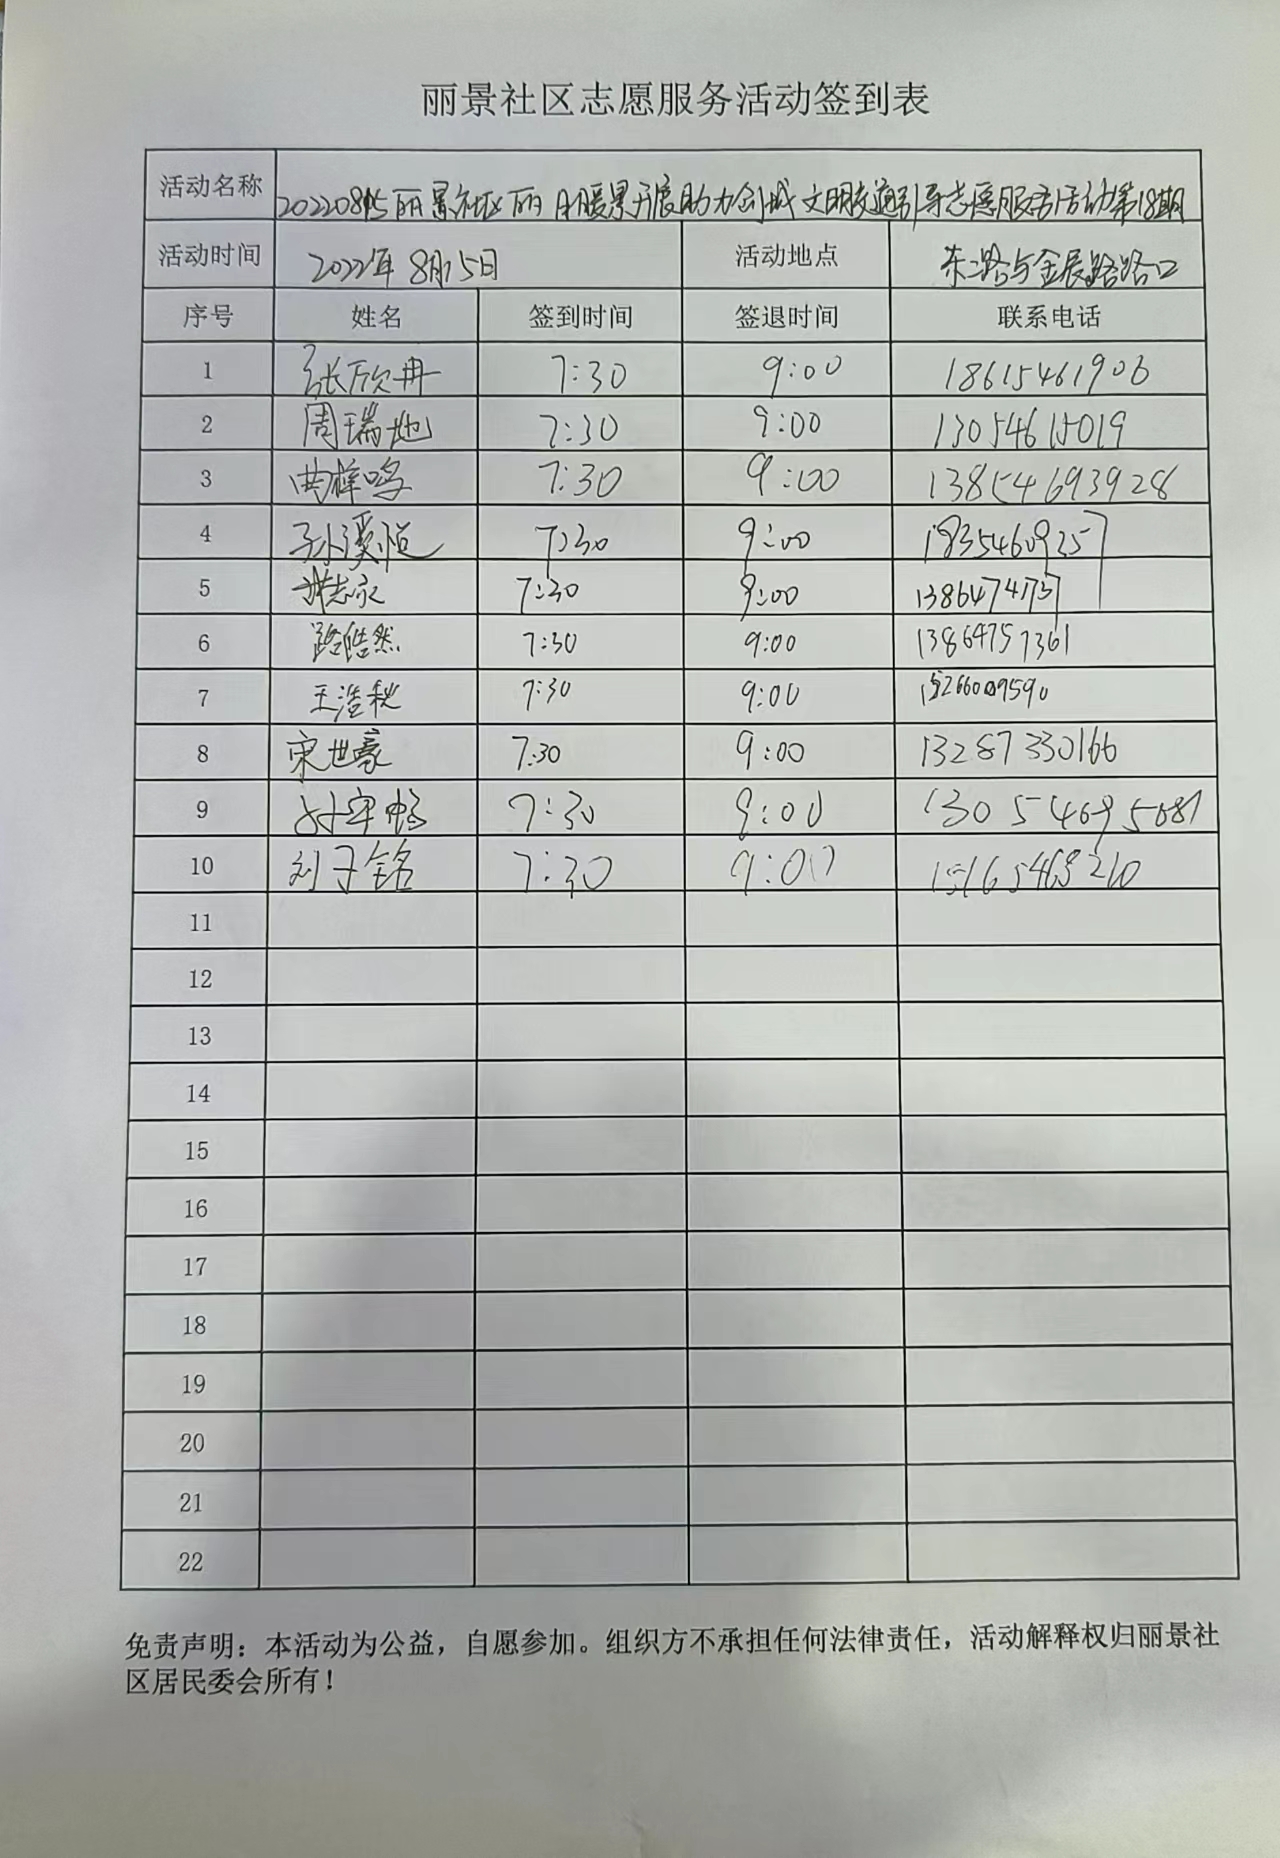 丽景社区志愿服务活动签到表
活动名称 20220815丽景社区丽日暖景开展助力创城文明交通引导志愿服务活动第18期
活动时间 2022年8月15日 活动地点 东二路与金辰路路口
序号 姓名 签到时间 签退时间 联系电话
1 张欣冉 7:30 9:00 18615461906
2 周瑞地 7:30 9:00 13054615019
3 曲梓鸣 7:30 9:00 13854693928
4 孙溪恒 7:30 9:00 18354609257
5 志永 7:30 9:00 13864741757
6 路皓然 7:30 9:00 13864757361
7 王浩秋 7:30 9:00 15266009590
8 宋世豪 7:30 9:00 13287330166
9 7:30 9:00 13054695687
10 刘子铭 7:30 9:00 15165468210
11
12
13
14
15
16
17
18
19
20
21
22
免责声明：本活动为公益，自愿参加。组织方不承担任何法律责任，活动解释权归丽景社
区居民委会所有！